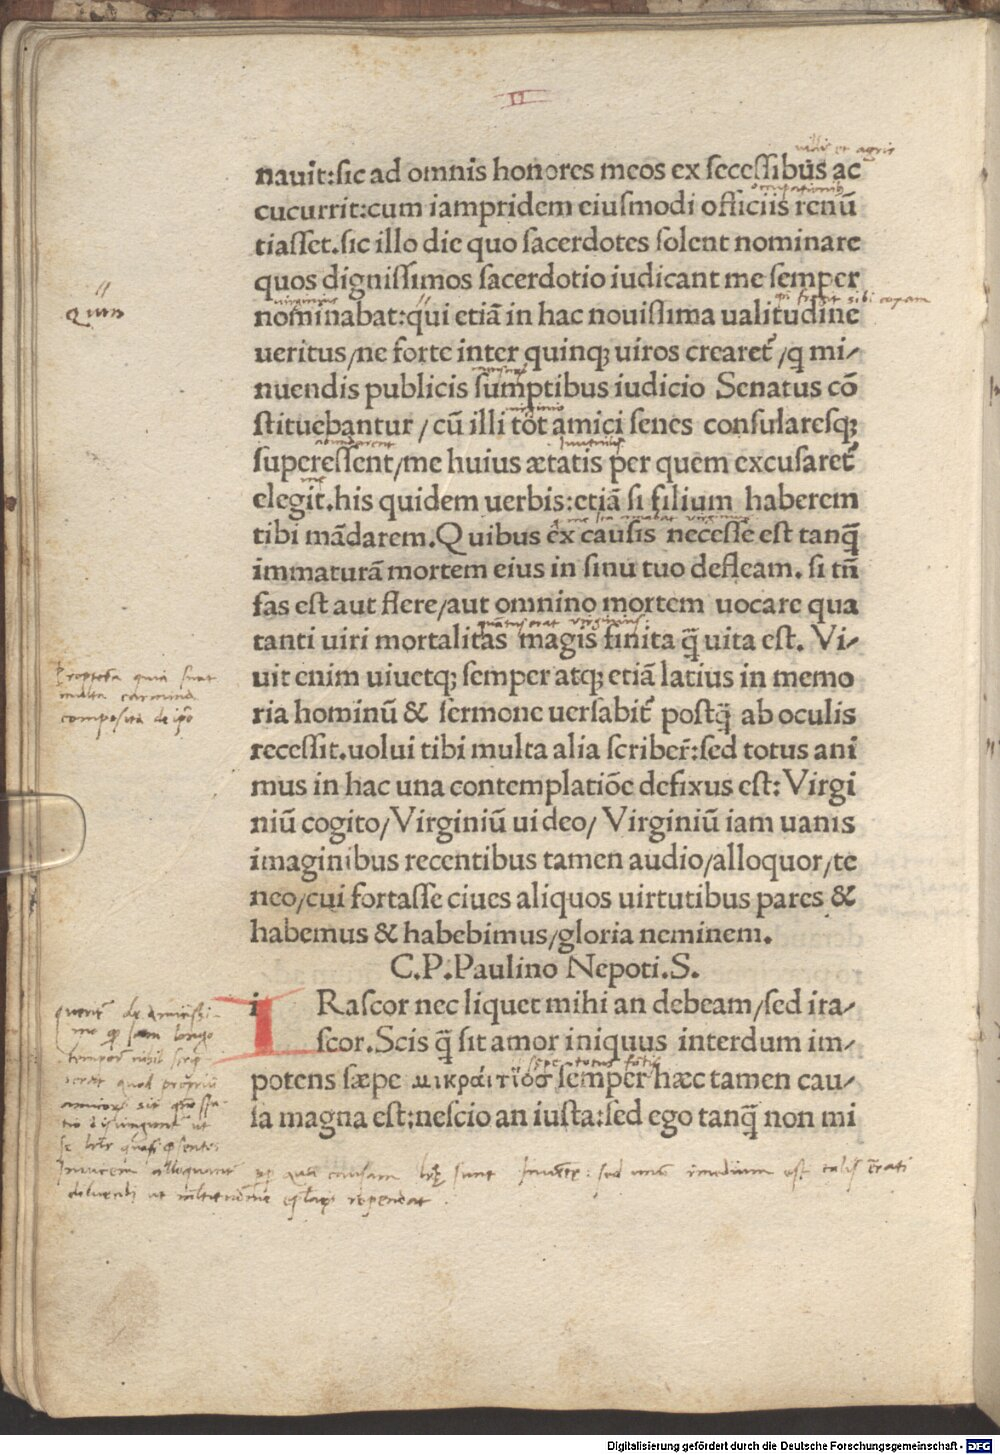 II
villis et agris
nauit:sic ad omnis honores meos ex secessibus ac
occupationib
cucurrit:cum iampridem eiusmodi officiis renũ
tiasset.sic illo die quo sacerdotes solent nominare
quos dignissimos sacerdotio iudicant me semper
virginius
Quin
nominabat:qui etiã in hac nouissima ualitudine
ueritus/ne forte inter quinqꝫ uiros crearet᷑/q̃ mi⸗
nuendis publicis sumptibus iudicio Senatus cõ
virginio
stituebantur/cũ illi tot amici senes consularesqꝫ
superessent/me huius ætatis per quem excusaret᷑
me
elegit.his quidem uerbis:etiã si filium haberem
tibi mãdarem.Quibus ex causis necesse est tanq̃
immaturã mortem eius in sinu tuo defleam. si tñ
fas est aut flere/aut omnino mortem uocare qua
virginius
tanti uiri mortalitas magis finita q̃ uita est. Vi⸗
uit enim uiuetqꝫ semper atqꝫ etiã latius in memo
quia sunt
multa carmina
composita de ipo
ria hominũ & sermone uersabit᷑ postq̃ ab oculis
recessit.uolui tibi multa alia scriber̃:sed totus ani
mus in hac una contemplatiõe defixus est: Virgi
niũ cogito/Virginiũ uideo/Virginiũ iam uanis
imaginibus recentibus tamen audio/alloquor/te
neo/cui fortasse ciues aliquos uirtutibus pares &
habemus & habebimus/gloria neminem.
C.P.Paulino Nepoti.S.
iI Rascor nec liquet mihi an debeam/sed ira⸗
scor.Scis q̃ sit amor iniquus interdum im⸗
potens sæpe μικράιτιος semper hæc tamen cau⸗
sa magna est:nescio an iusta:sed ego tanq̃ non mi
causam sunt
Digitalisierung gefördert durch die Deutsche Forschungsgemeinschaft - DFG